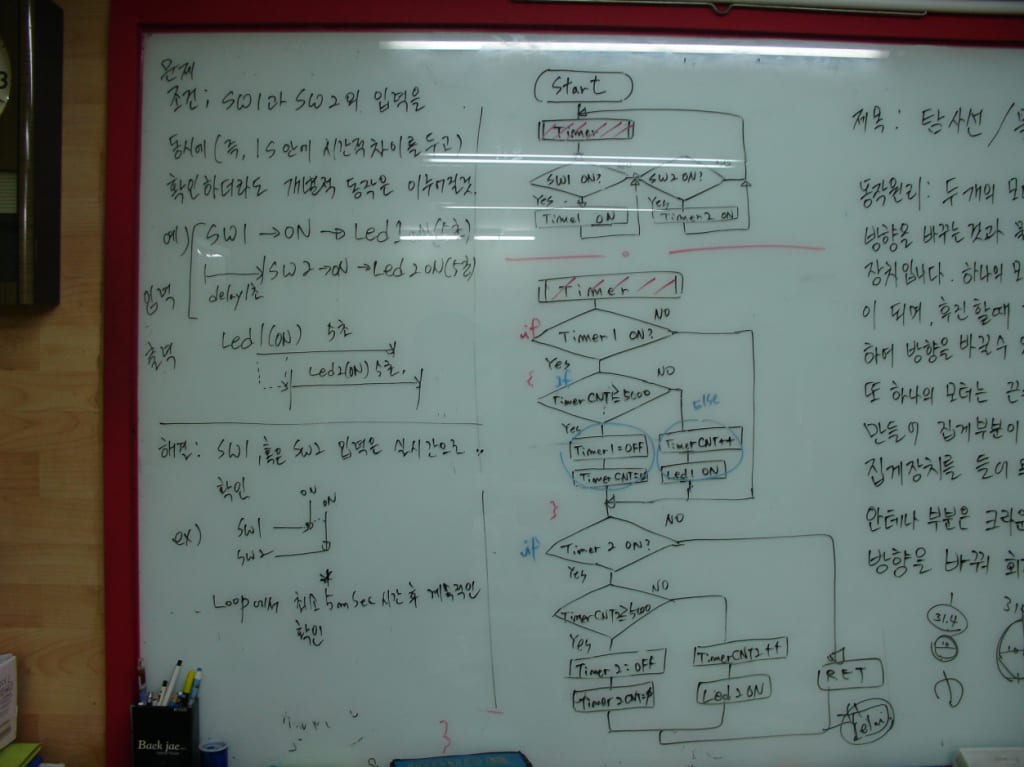 문제
조건; SW1과 SW2의 입력을
동시에(즉, 1S 안에 시간적차이를 두고)
확인하더라도 개별적 동작은 이루어질것.
예) SW1 → ON → Led 1 ON(5초)
SW2 → ON → Led 2 ON(5초)
delay1초
입력
출력
Led1(ON) 5초
Led2(ON) 5초.
해결: SW1, 혹은 SW2 입력은 실시간으로
확인
ex)
ON
ON
SW1
SW2
Loop에서 최소 5mSec 시간 후 계속적인
확인
Start
Timer
SW1 ON?
SW2 ON?
NO
Yes
Yes
Time1 ON
Timer 2 ON
Timer
if
Timer 1 ON?
NO
Yes
{
if
NO
Timer CNT≥5000
else
Yes
Timer 1 = OFF
Timer CNT++
Timer CNT=0
Led 1 ON
}
NO
if
Timer 2 ON?
Yes
NO
TimerCNT2≥5000
Yes
Timer 2 = OFF
TimerCNT2++
Timer2CNT=0
Led 2 ON
RET
}
제목: 탐사선 /
동작원리: 두개의 모
방향을 바꾸는것과
장치입니다. 하나의 모
이 되며, 후진할때
하며 방향을 바꿀수
또 하나의 모터는
만들어 집게부분이
집게장치를 들어
안테나 부분은 크라운
방향을 바꿔 회
31.4
10
31.
10
Baek jae